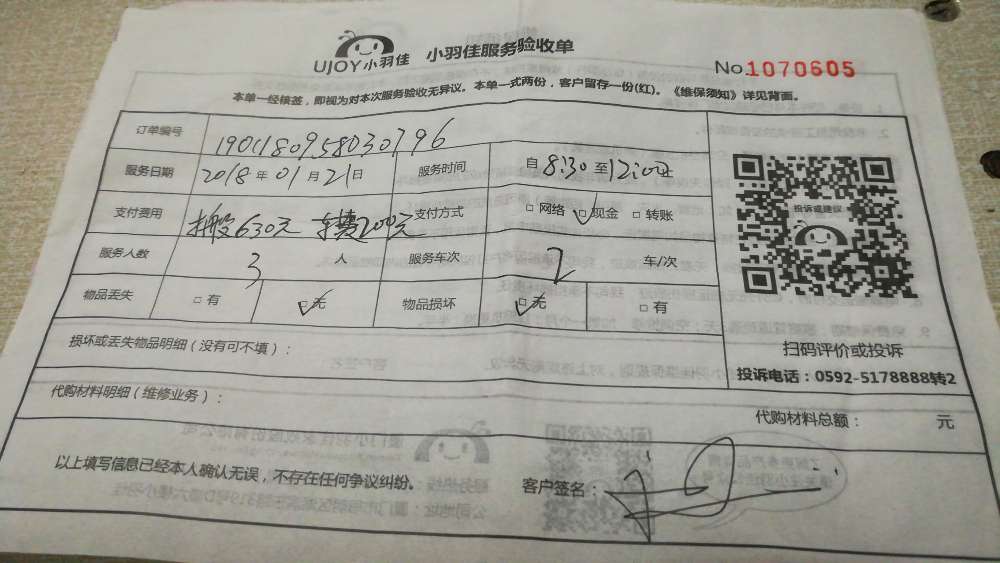 UJOY小羽佳 小羽佳服务验收单
No.1070605
本单一经核签，即视为对本次服务验收无异议。本单一式两份，客户留存一份(红)。《维保须知》详见背面。
订单编号 1901180958030796
服务日期 2018年01月21日 服务时间 自8:30至12:00
支付费用 搬家630元 200元 支付方式 □网络 ☑现金 □转账
服务人数 3 人 服务车次 2 车/次
物品丢失 □有 ☑无 物品损坏 ☑无 □有
损坏或丢失物品明细（没有可不填）：
代购材料明细（维修业务）：
代购材料总额： 元
以上填写信息已经本人确认无误，不存在任何争议纠纷。
客户签名：
投诉或建议
扫码评价或投诉
投诉电话：0592-5178888转2